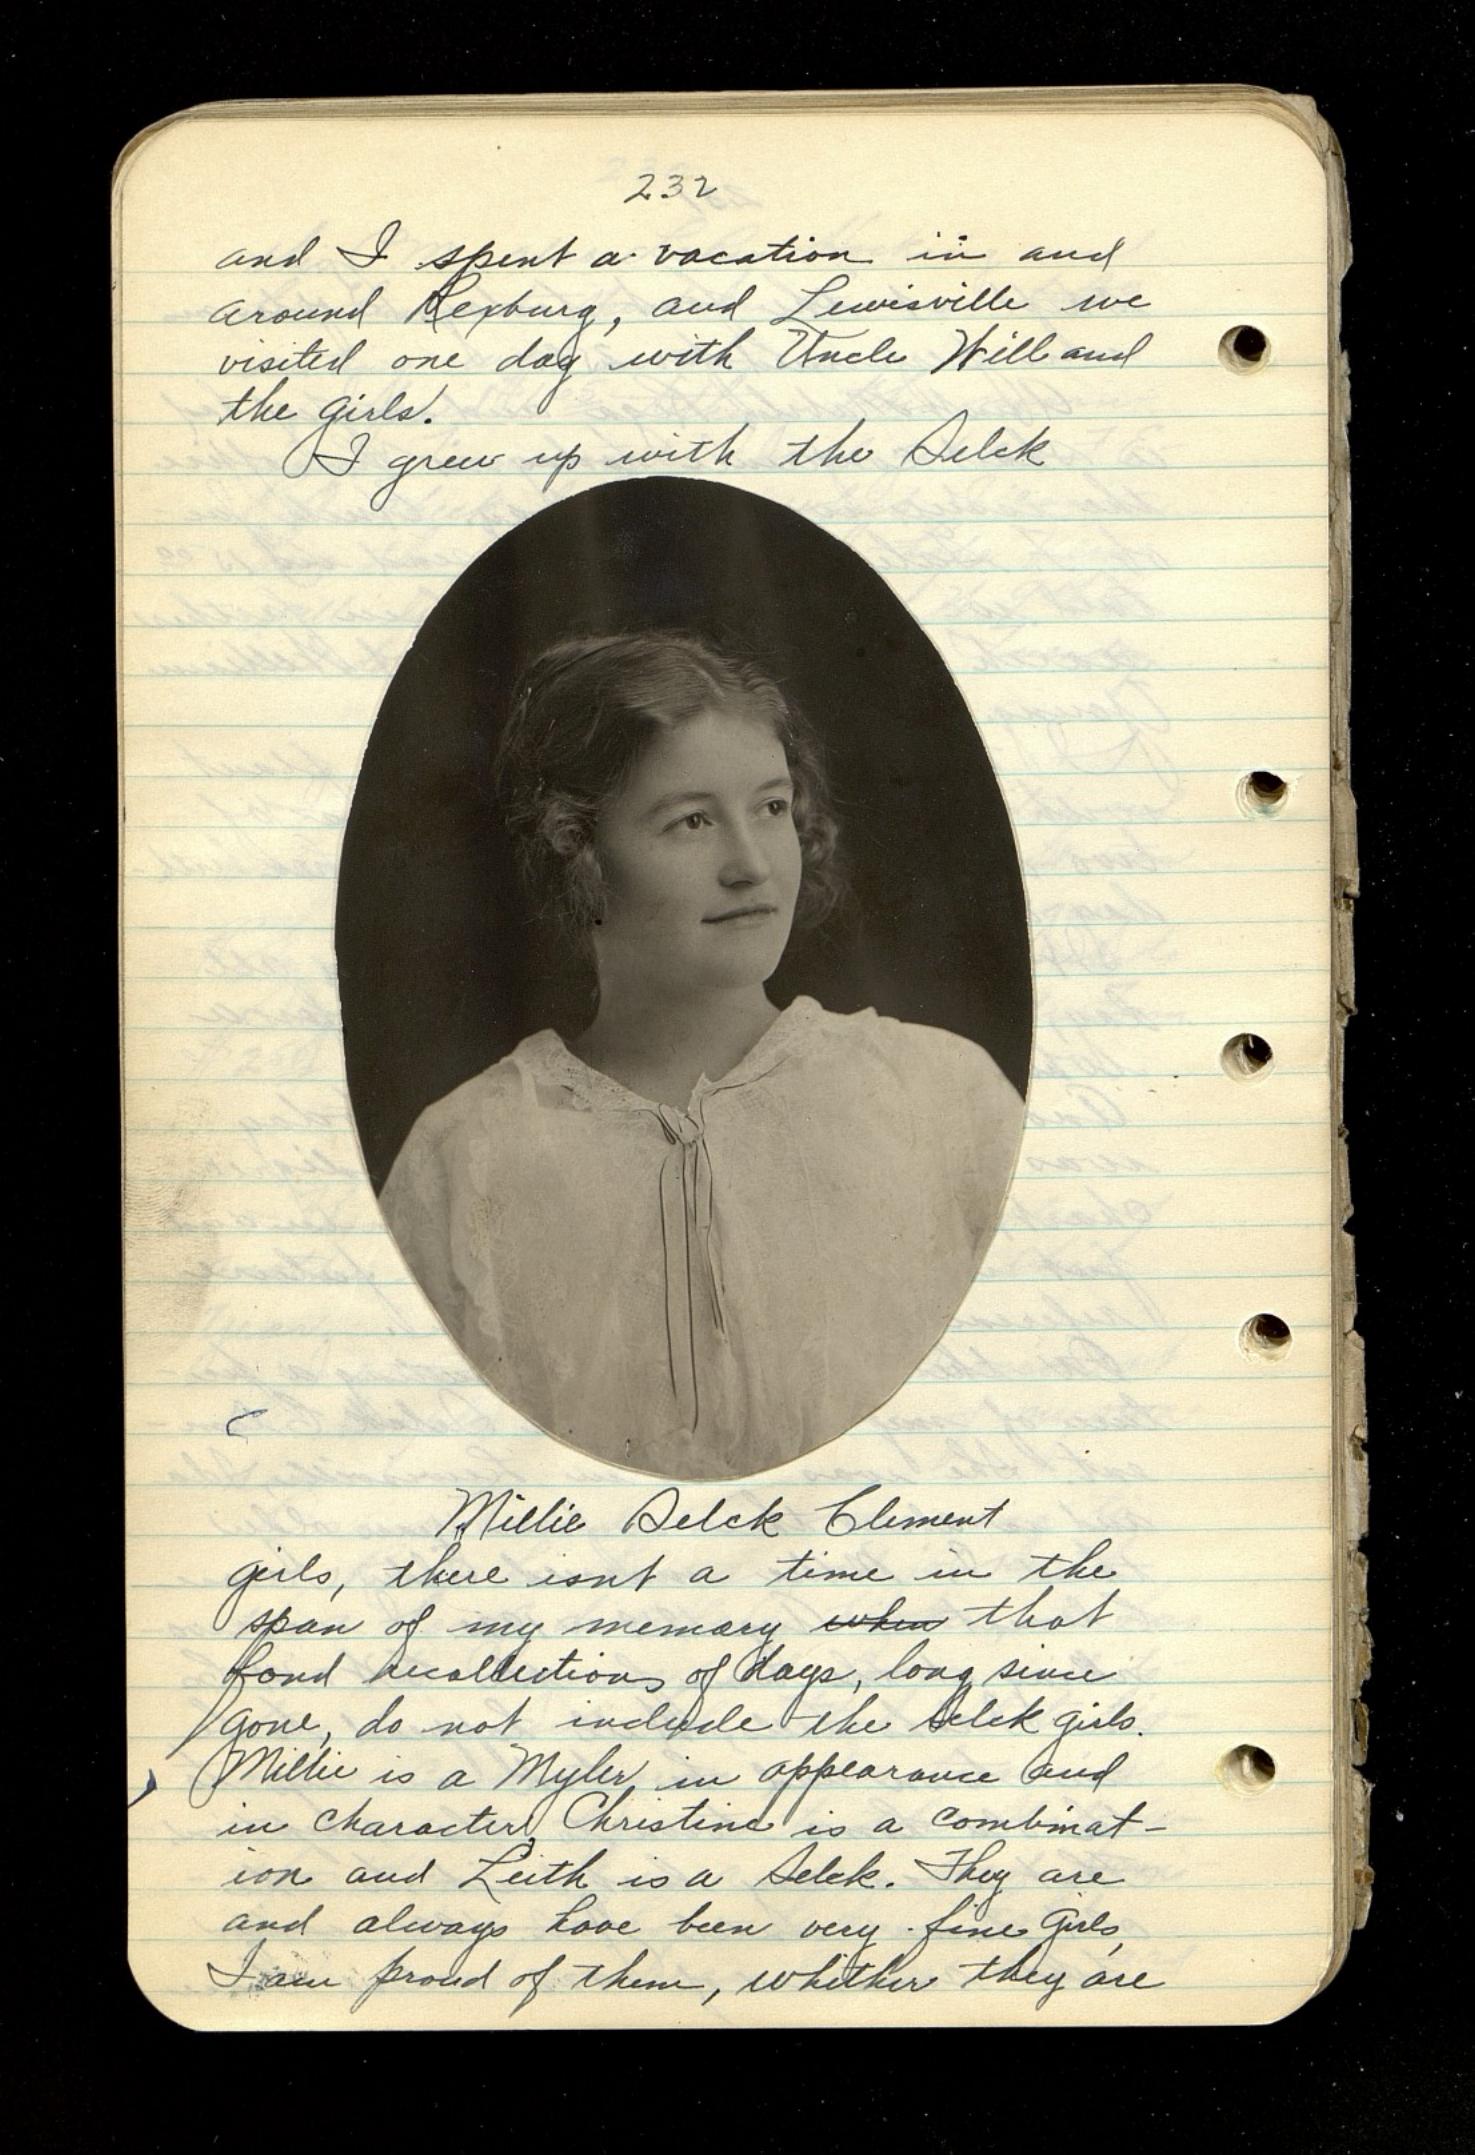 232
and I spent a vacation in and
around Rexburg, and Lewisville we
visited one day with Uncle Will and
the girls.
I grew up with the Selck
Millie Selck Clement
girls, there isnt a time in the
span of my memory when that
fond recollections of days, long since
gone, do not include the Selck girls.
Millie is a Myler, in appearance and
in character, Christine is a combinat-
ion and Leith is a Selck. They are
and always have been very fine girls,
I am proud of them, whither they are